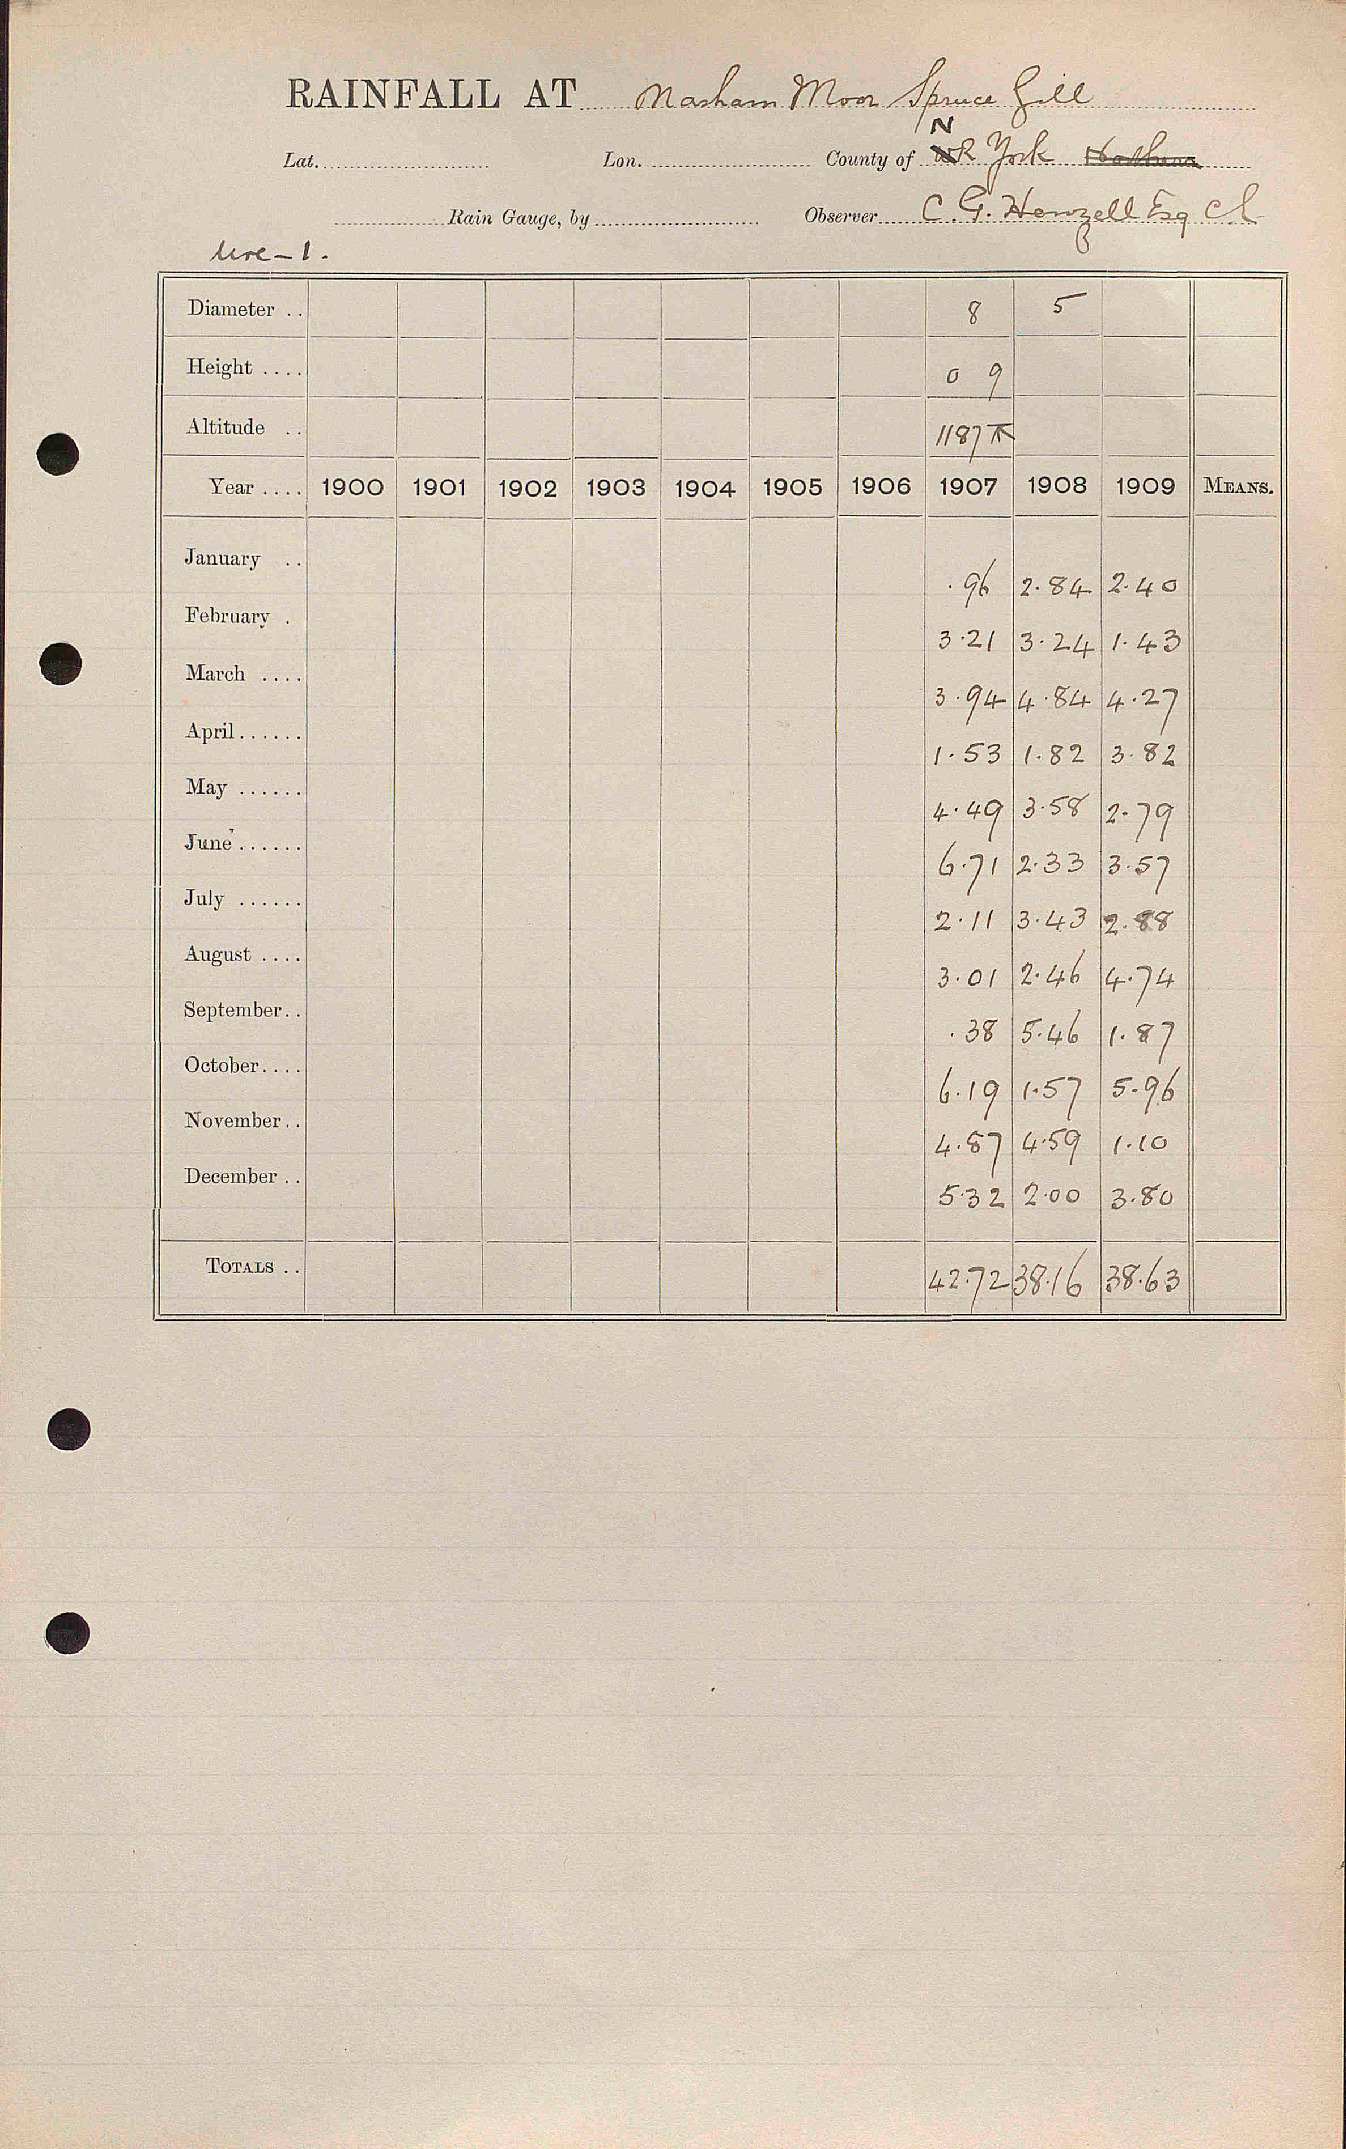 RAINFALL AT Masham Moor Spruce Gill
N
Lat. Lon. County of WR York
Rain Gauge, by Observer C. G. Henzell Esq
Ure - 1.
Diameter .. 8 5
Height .... 0 9
Altitude .. 1187
Year .... 1900 1901 1902 1903 1904 1905 1906 1907 1908 1909 MEANS.
January .. .96 2.84 2.40
February . 3.21 3.24 1.43
March .... 3.94 4.84 4.27
April ...... 1.53 1.82 3.82
May ...... 4.49 3.58 2.79
June ...... 6.71 2.33 3.57
July ...... 2.11 3.43 2.88
August .... 3.01 2.46 4.74
September .. .38 5.46 1.87
October .... 6.19 1.57 5.96
November .. 4.87 4.59 1.10
December .. 5.32 2.00 3.80
TOTALS .. 42.72 38.16 38.63